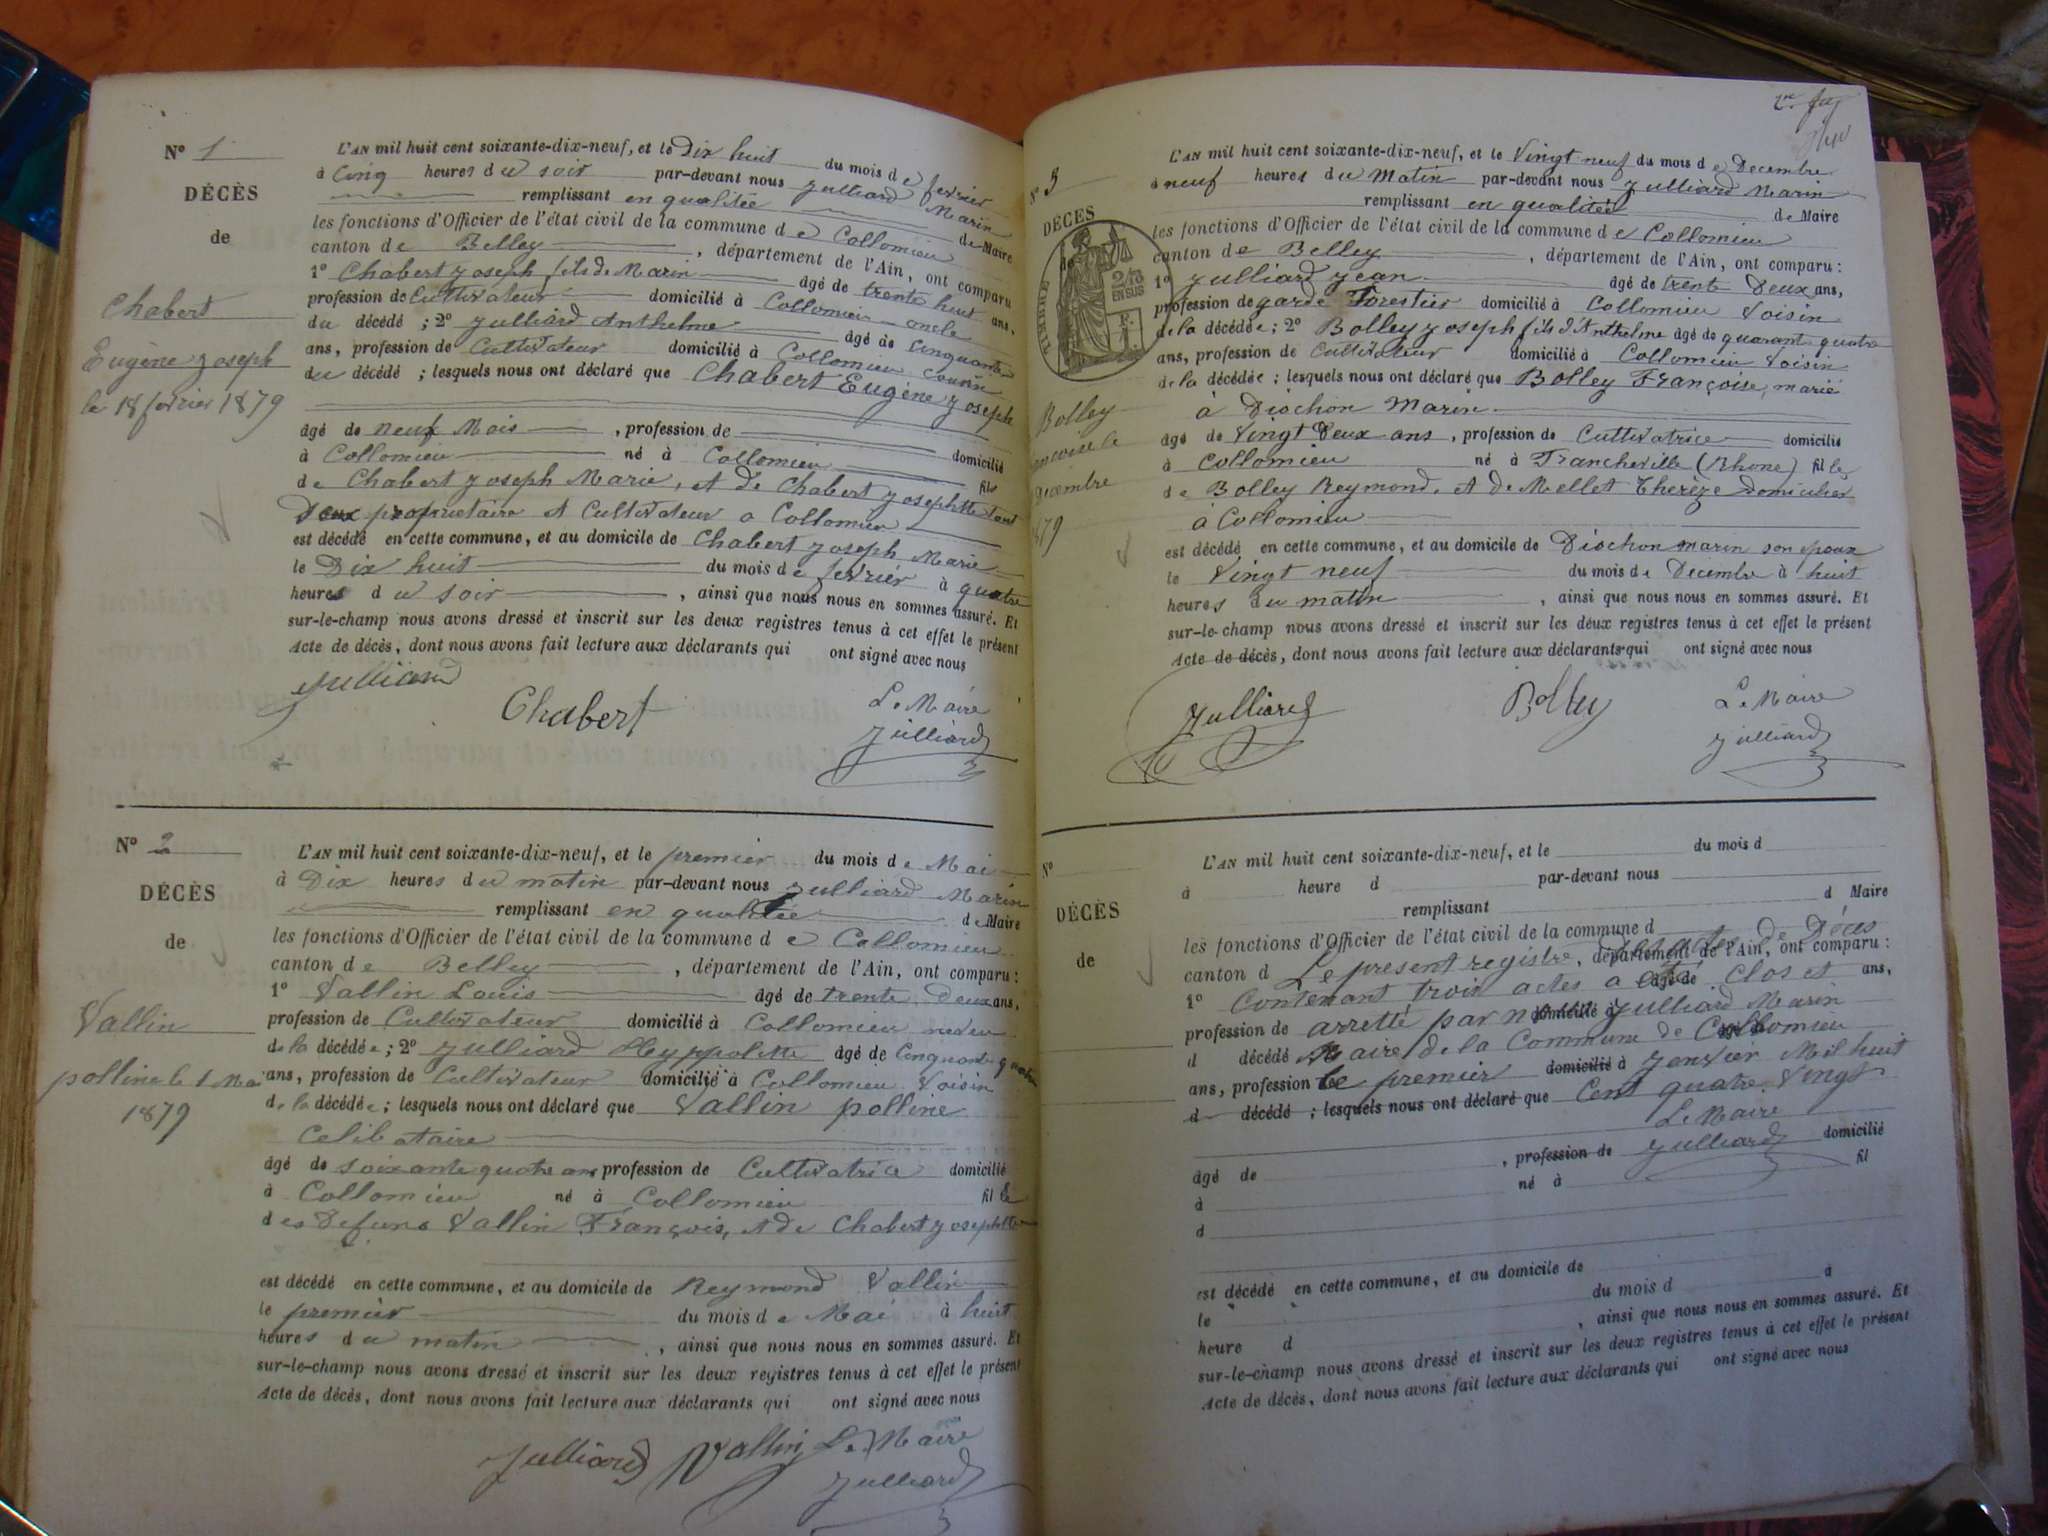 Nº 1
DÉCÈS
de
Chabert
Eugène Joseph
le 18 fevrier 1879
L'AN mil huit cent soixante-dix-neuf, et le Dix huit du mois de fevrier
à Cinq heures du soir par-devant nous Julliard Marin
remplissant en qualitée de Maire
les fonctions d'Officier de l'état civil de la commune de Collomieu
canton de Belley, département de l'Ain, ont comparu
1º Chabert Joseph fils de Marin âgé de trente huit ans,
profession de Cultivateur domicilié à Collomieu oncle
du décédé ; 2º Julliard Anthelme âgé de cinquante
ans, profession de Cultivateur domicilié à Collomieu cousin
du décédé ; lesquels nous ont déclaré que Chabert Eugène Joseph
âgé de neuf Mois, profession de domicilié
à Collomieu né à Collomieu fils
de Chabert Joseph Marie, et de Chabert Josephtte tout
Deux propriétaire et Cultivateur a Collomieu
est décédé en cette commune, et au domicile de Chabert Joseph Marie
le Dix huit du mois de fevrièr à quatre
heures du soir, ainsi que nous nous en sommes assuré. Et
sur-le-champ nous avons dressé et inscrit sur les deux registres tenus à cet effet le présent
Acte de décès, dont nous avons fait lecture aux déclarants qui ont signé avec nous
Julliard Chabert Le Maire
Julliard
Nº 2
DÉCÈS
de
Vallin
polline le 1 Mai
1879
L'AN mil huit cent soixante-dix-neuf, et le premier du mois de Mai
à Dix heures du matin par-devant nous Julliard Marin
remplissant en qualitée de Maire
les fonctions d'Officier de l'état civil de la commune de Collomieu
canton de Belley, département de l'Ain, ont comparu :
1º Vallin Louis âgé de trente Deux ans,
profession de Cultivateur domicilié à Collomieu neveu
de la décédée ; 2º Julliard Heyppolitte âgé de Cinquante quatre
ans, profession de Cultivateur domicilié à Collomieu Voisin
de la décédée ; lesquels nous ont déclaré que Vallin polline
Celibataire
âgé de soixante quatre ans profession de Cultivatrice domicilié
à Collomieu né à Collomieu fille
des Defuns Vallin François, et de Chabert Josephtte
est décédé en cette commune, et au domicile de Reymond Vallin
le premier du mois de Mai à huit
heures du matin, ainsi que nous nous en sommes assuré. Et
sur-le-champ nous avons dressé et inscrit sur les deux registres tenus à cet effet le présent
Acte de décès, dont nous avons fait lecture aux déclarants qui ont signé avec nous
Julliard Vallin Le Maire
Julliard
Nº 3
DÉCÈS
TIMBRE
2/10
EN SUS
Bolley
decembre
L'AN mil huit cent soixante-dix-neuf, et le Vingt neuf du mois de Decembre
à neuf heures du Matin par-devant nous Julliard Marin
remplissant en qualitée de Maire
les fonctions d'Officier de l'état civil de la commune de Collomieu
canton de Belley, département de l'Ain, ont comparu :
1º Julliard Jean âgé de trente Deux ans,
profession de garde Forestier domicilié à Collomieu Voisin
de la décédée ; 2º Bolley Joseph fils d'Anthelme âgé de quarant quatre
ans, profession de Cultivateur domicilié à Collomieu Voisin
de la décédée ; lesquels nous ont déclaré que Bolley Françoise, marié
à Diochon Marin
âgé de Vingt Deux ans, profession de Cultivatrice domicilié
à Collomieu né à Francheville (Rhone) fille
de Bolley Reymond, et de Mellet Therèze Domicilier
à Collomieu
est décédé en cette commune, et au domicile de Diochon marin son epoux
le Vingt neuf du mois de Decembre à huit
heures du matin, ainsi que nous nous en sommes assuré. Et
sur-le-champ nous avons dressé et inscrit sur les deux registres tenus à cet effet le présent
Acte de décès, dont nous avons fait lecture aux déclarants qui ont signé avec nous
Julliard Bolley Le Maire
Julliard
Nº
DÉCÈS
de
L'AN mil huit cent soixante-dix-neuf, et le du mois d
à heure d par-devant nous
remplissant d Maire
les fonctions d'Officier de l'état civil de la commune d
canton d , département de l'Ain, ont comparu :
Le present registre, de Déces
1º Contenant trois actes a eté Clos et ans,
profession de arretté par nous domicilié à Julliard Marin
d décédé Maire de la Commune de Collomieu
ans, profession le premier domicilié à Jenvier Mil huit
d décédé ; lesquels nous ont déclaré que Cent quatre Vingt
Le Maire
âgé de , profession de Julliard domicilié
à né à fil
d
est décédé en cette commune, et au domicile de
le du mois d à
heure d , ainsi que nous nous en sommes assuré. Et
sur-le-champ nous avons dressé et inscrit sur les deux registres tenus à cet effet le présent
Acte de décès, dont nous avons fait lecture aux déclarants qui ont signé avec nous